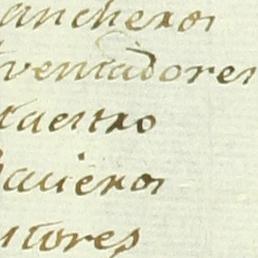 ancheros
ventadores
tuestro
avieros
utores